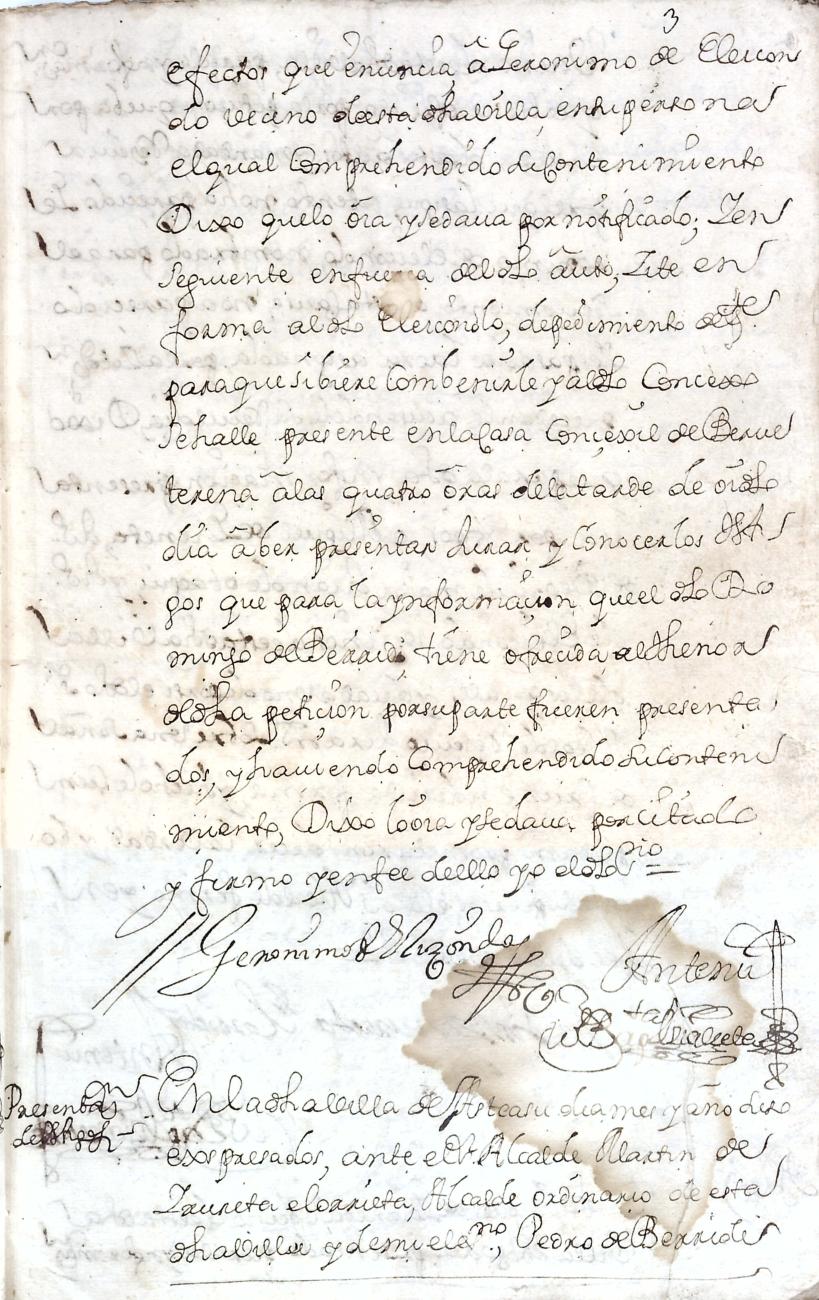 3
efectos que enuncia, a Geronimo de Eleicon
do vecino de esta dha villa, en su persona
el qual Comprehendido su Contenimiento
Dixo que lo oia y se dava por notificado; Y en
seguiente en fuerza del dho auto, Zite en
forma al dho Eleicondo, de pedimiento de
para que si biere Combenirle y al dho Concexo
se halle presente en la Casa Conçexil de Berue
terena a las quatro oras de la tarde de oi dho
dia a ber presentar Jurar y Conocer los testi
gos que para la ynformaçion que el dho Do
mingo de Berridi tiene ofrecida al thenor
de dha peticion por su parte fueren presenta
dos, y haviendo Comprehendido su conteni
miento, Dixo lo oia y se dava por Citado
y firmo y en fee de ello yo el dho ssno =
Geronimo de Elizondo
Antemi
Presentaon
de thgos
En la dha villa de Asteasu dia mes y año dho
exspresados, ante el Sr. Alcalde Martin de
Zrureta elorrieta, Alcalde ordinario de esta
dha villa y de mi el sno, Pedro de Berridi